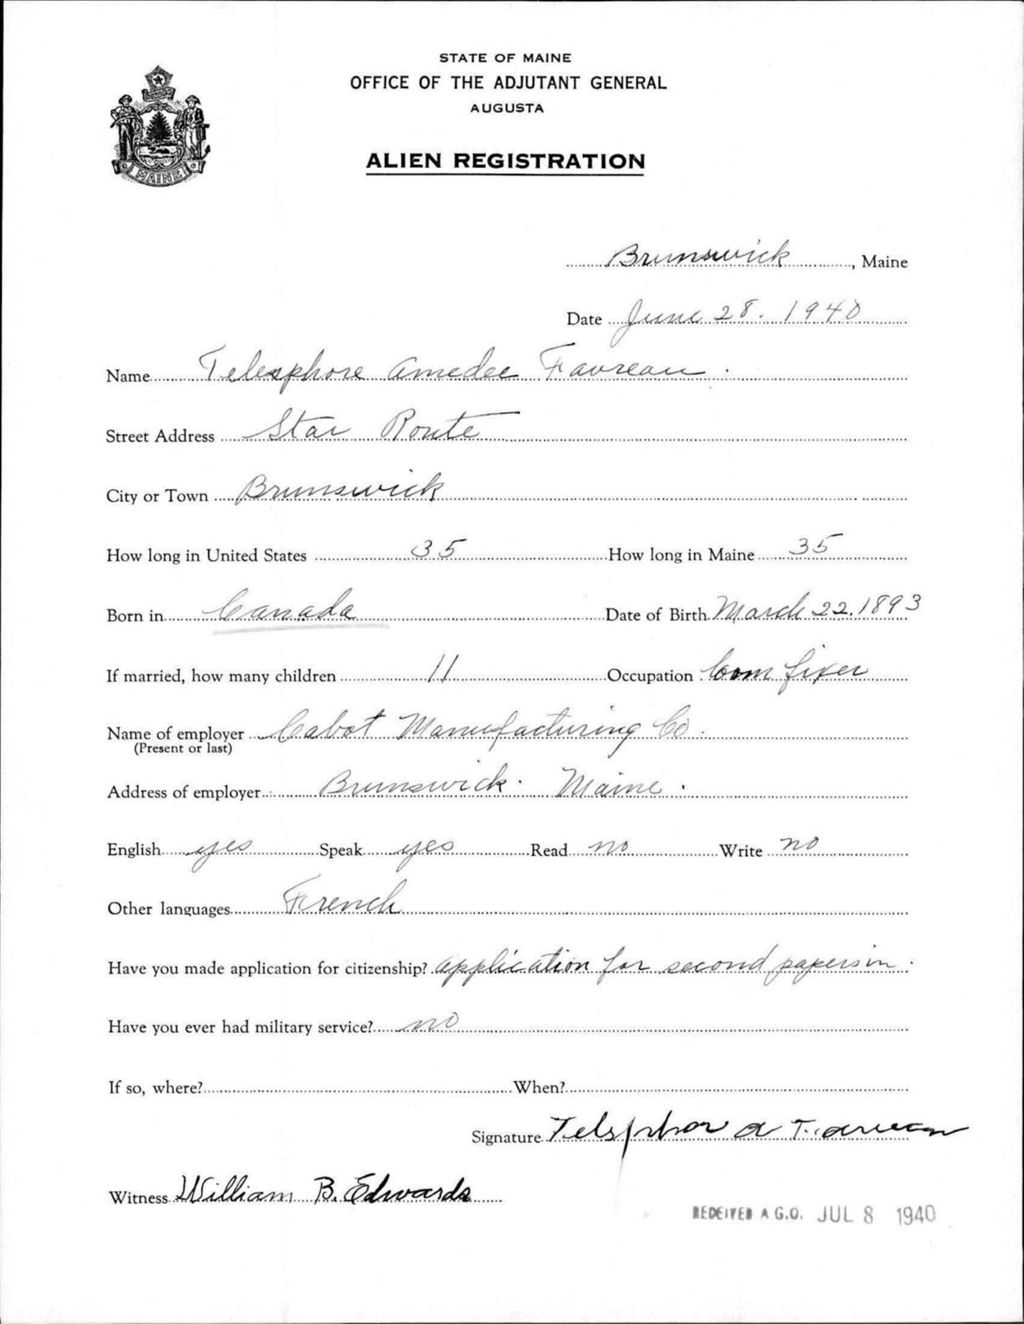 STATE OF MAINE
OFFICE OF THE ADJUTANT GENERAL
AUGUSTA
ALIEN REGISTRATION
MAINE
Brunswick, Maine
Date June 28. 1940
Name Telesphore Amedee Favreau.
Street Address Star Route
City or Town Brunswick
How long in United States 35 How long in Maine 35
Born in Canada Date of Birth March 22. 1893
If married, how many children 11 Occupation loom fixer
Name of employer Cabot Manufacturing Co.
(Present or last)
Address of employer Brunswick. Maine.
English yes Speak yes Read no Write no
Other languages French
Have you made application for citizenship? application for second papers in.
Have you ever had military service? no
If so, where? When?
Signature Telsphor a Favreau
Witness William B. Edwards
RECEIVED A.G.O. JUL 8 1940